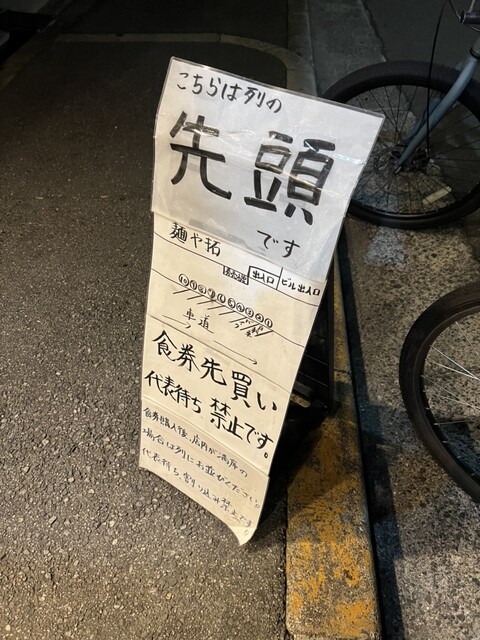 こちらは列の
先頭
です
麺や拓
出入口
ビル出入口
車道
食券先買い
代表待ち 禁止です。
食券購入後、店内が満席の
場合は列にお並びください。
代表待ち、割り込み禁止です。